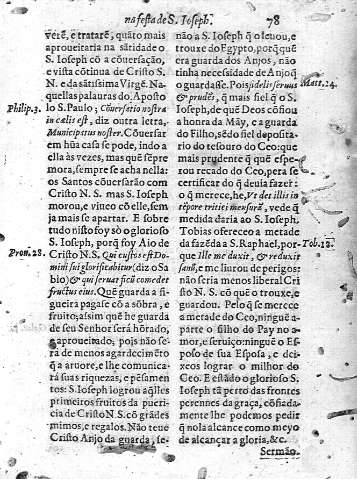 na festa de S. Ioseph.
78
verẽ, e tratarẽ, quãto mais
aproueitaria na sãtidade o
S. Ioseph cõ a cõuersação,
e vista cõtinua de Cristo S.
N. e da sãtissima Virgẽ. Na
quellas palauras do Aposto
Philip. 3.
lo S. Paulo; Cõuersatio nostra
in cælis est, diz outra letra,
Municipatus noster. Cõuersar
em hũa casa se pode, indo a
ella às vezes, mas quẽ sẽpre
mora, sempre se acha nella:
os Santos cõuersarão com
Cristo N. S. mas S. Ioseph
morou, e viueo cõ elle, sem
ja mais se apartar. E sobre
tudo nisto foy sò o glorioso
S. Ioseph, porq̃ foy Aio de
Prou. 28.
Cristo N. S. Qui custos est Do-
mini sui glorificabitur (diz o Sa
bio) & qui seruat ficũ comedet
fructus eius. Quẽ guarda a fi-
gueira pagase cõ a sõbra, e
fruito; assim quẽ he guarda
de seu Senhor serà hõrado,
& aproueitado; pois não se-
rà de menos agardecimẽto
q̃ a aruore, e lhe comunica
rà suas riquezas, e pẽsamẽ-
tos: S. Ioseph logrou aq̃lles
primeiros fruitos da pueri-
cia de Cristo N. S. cõ grãdes
mimos, e regalos. Não teue
Cristo Anjo da guarda, se-
não a S. Ioseph q̃ o leuou, e
trouxe do Egypto, porq̃ quẽ
era guarda dos Anjos, não
tinha necessidade de Anjo q̃
o guardasse. Pois fidelis seruus
Matt. 24.
& prudẽs, q̃ mais fiel q̃ o S.
Ioseph, de quẽ Deos cõfiou
a honra da Mãy, e a guarda
do Filho, sẽdo fiel deposita-
rio do tesouro do Ceo: que
mais prudente q̃ quẽ espe-
rou recado do Ceo, pera se
certificar do q̃ deuia fazer:
o q̃ merece, he, Vt det illis in
tẽpore tritici mensurã, vede q̃
medida daria ao S. Ioseph.
Tobias ofereceo a metade
da fazẽda a S. Raphael, por-
Tob. 12.
que Ille me duxit, & reduxit
sanũ, e me liurou de perigos:
não seria menos liberal Cri
sto N. S. cõ que o trouxe, e
guardou. Pelo q̃ se merecco
a metade do Ceo, ninguẽ a-
parte o filho do Pay no a-
mor, e seruiço: ninguẽ o Es-
poso de sua Esposa, e dei-
xeos lograr o milhor do
Ceo. E estãdo o glorioso S.
Ioseph tã perto das frontes
perennes da graça, cõfiada-
mente lhe podemos pedir
q̃ nola alcance como meyo
de alcançar a gloria, &c.
Sermão.